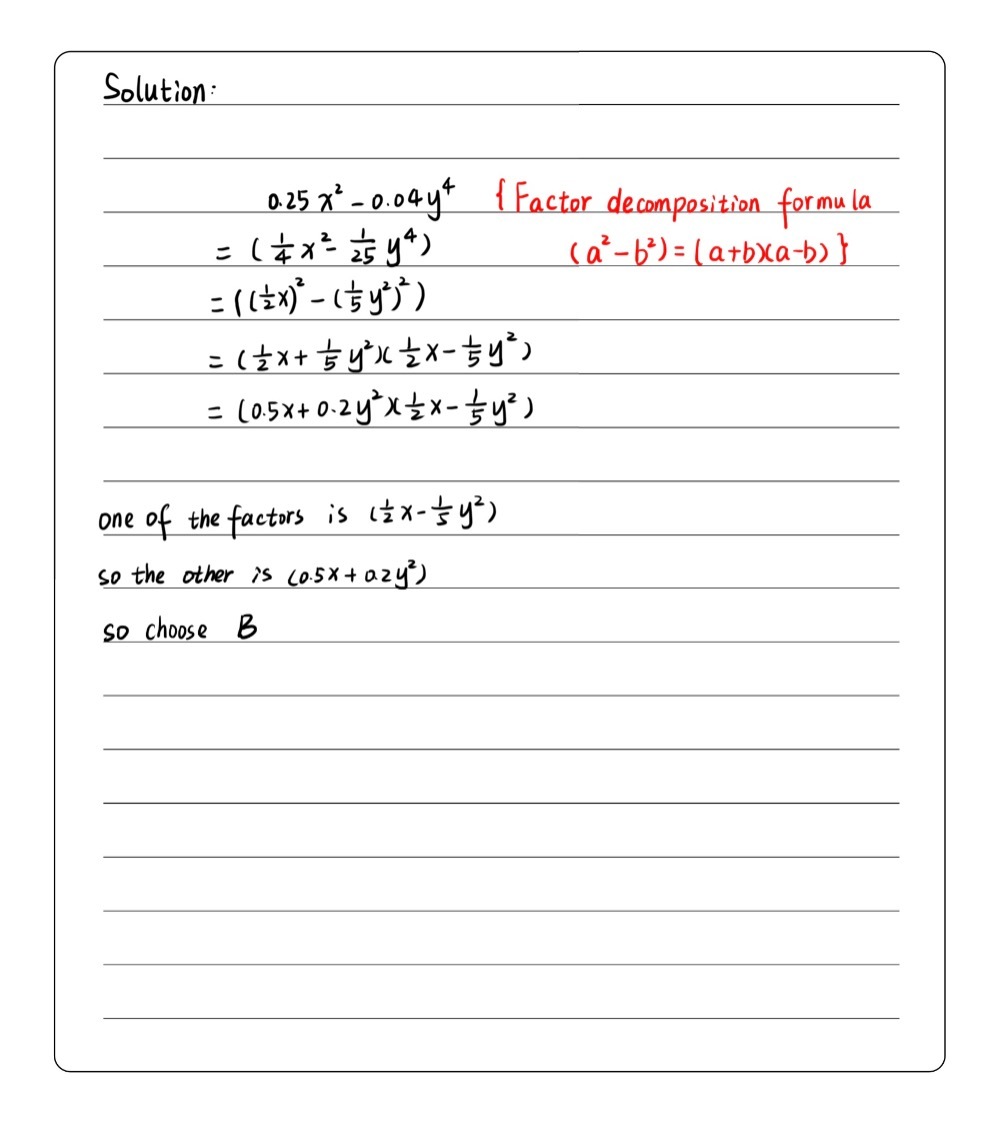 Solution:
0.25x² - 0.04y⁴ {Factor decomposition formula
= (1/4 x² - 1/25 y⁴) (a² - b²) = (a+b)(a-b)}
= ((1/2 x)² - (1/5 y²)²)
= (1/2 x + 1/5 y²)(1/2 x - 1/5 y²)
= (0.5x + 0.2y²)(1/2 x - 1/5 y²)
one of the factors is (1/2 x - 1/5 y²)
so the other is (0.5x + 0.2y²)
so choose B